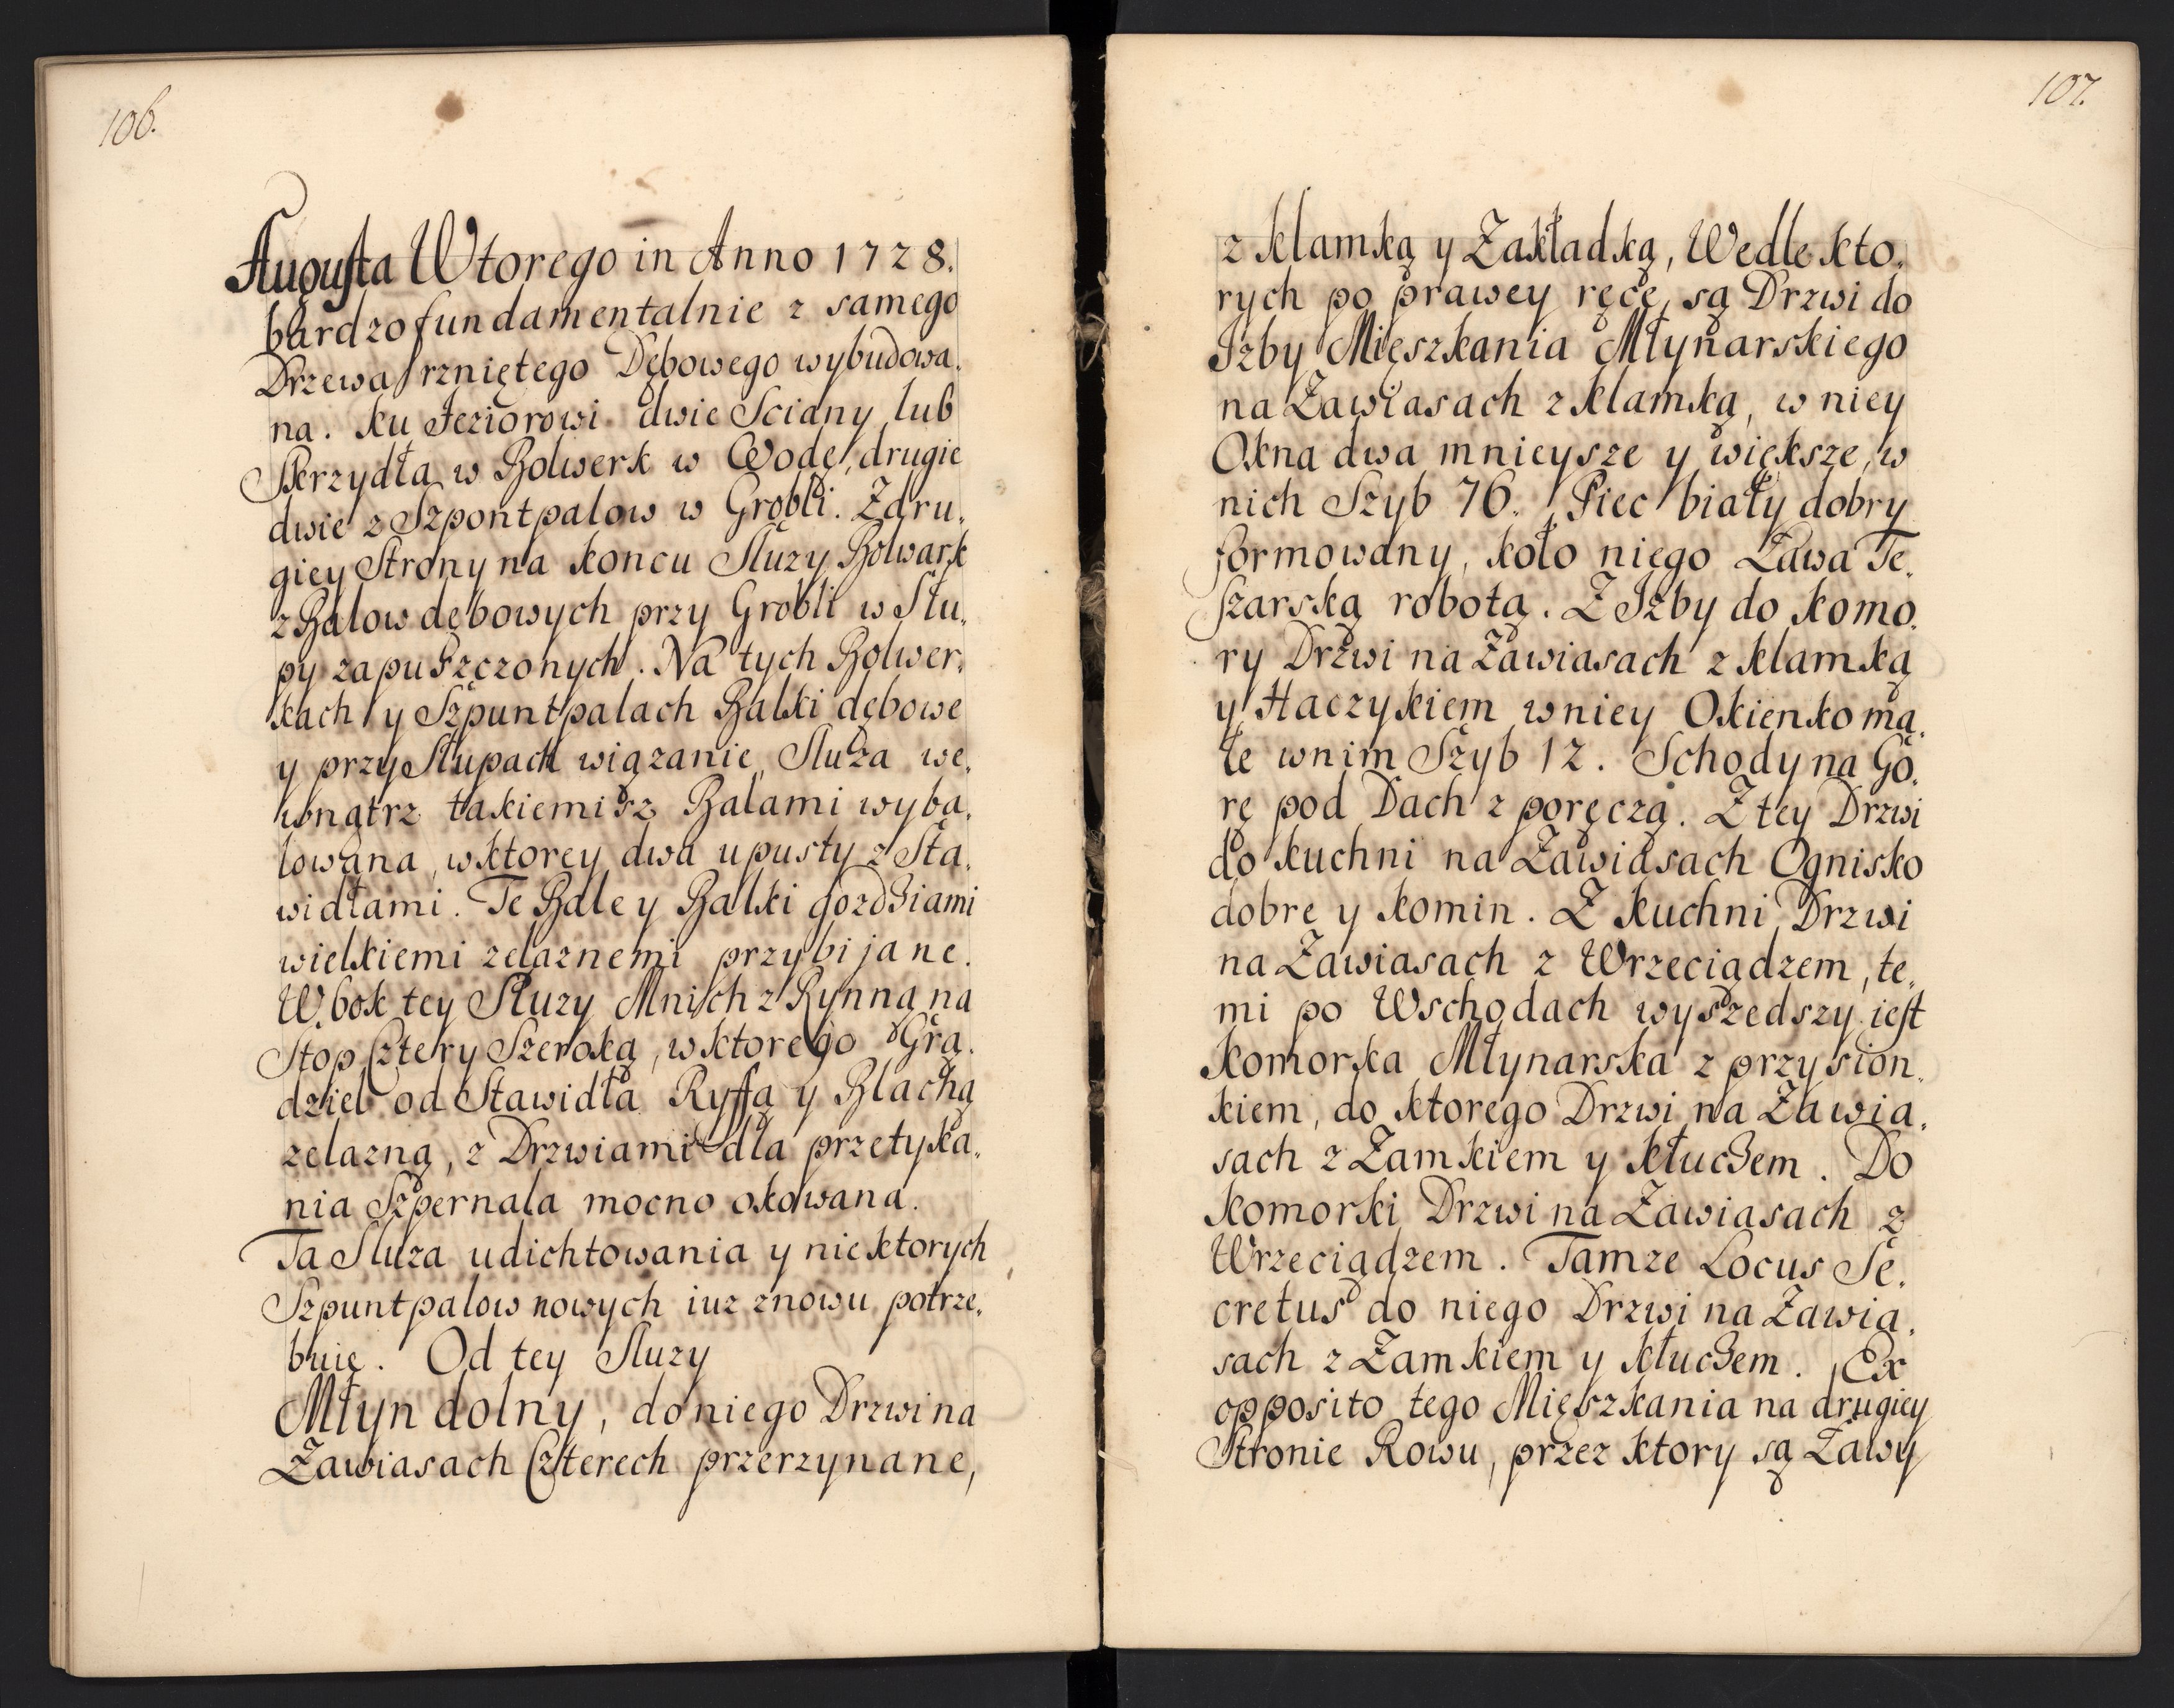 106.
Augusta Wtorego in Anno 1728.
bardzo fundamentalnie z samego
Drzewa rzniętego Dębowego wybudowa.
na. ku Jeziorowi dwie Sciany lub
Skrzydła w Bolwerk w Wodę, drugie
dwie z Szpontpalow w Grobli. Zdru.
giey Strony na koncu Sluzy Bolwark
z Balow dębowych przy Grobli w Słu.
py zapuszczonych. Na tych Bolwer.
kach y Szpuntpalach Balki dębowe
y przy Słupach wiązanie, Sluza we.
wnątrz takiemisz Balami wyba.
lowana, wktorey dwa upusty z Sta.
widłami. Te Bale y Balki gozdziami
wielkiemi zelaznemi przybijane.
W bok tey Sluzy Mnich z Rynną na
Stop Cztery Szeroką, wktorego Grą.
dziel od Stawidła Ryffą y Blachą
zelazną, z Drzwiami dla przetyka.
nia Szpernala mocno okowana.
Ta Sluza udichtowania y niektorych
Szpuntpalow nowych iuz znowu potrze.
buie. Od tey Sluzy
Młyn dolny, do niego Drzwi na
Zawiasach Czterech przerzynane,
107.
z klamką y Zakładką, Wedle kto.
rych po prawey ręce, są Drzwi do
Izby Mięszkania Młynarskiego
na Zawiasach z klamką, w niey
Okna dwa mnieysze y większe, w
nich Szyb 76. Piec biały dobry
formowany, koło niego Ława Te.
szarską robotą. Z Izby do komo.
ry Drzwi na Zawiasach z klamką
y Haczykiem wniey Okienko ma.
łe wnim Szyb 12. Schody na Go.
rę pod Dach z poręczą. Z tey Drzwi
do kuchni na Zawiasach Ognisko
dobre y komin. Z kuchni Drzwi
na Zawiasach z Wrzeciądzem, te.
mi po Wschodach wyszedszy iest
komorka Młynarska z przysion.
kiem, do ktorego Drzwi na Zawia.
sach z Zamkiem y kluczem. Do
komorki Drzwi na Zawiasach z
Wrzeciądzem. Tamze Locus Se.
cretus do niego Drzwi na Zawia.
sach z Zamkiem y kluczem. Ex
opposito tego Mięszkania na drugiey
Stronie Rowu, przez ktory są Ławy